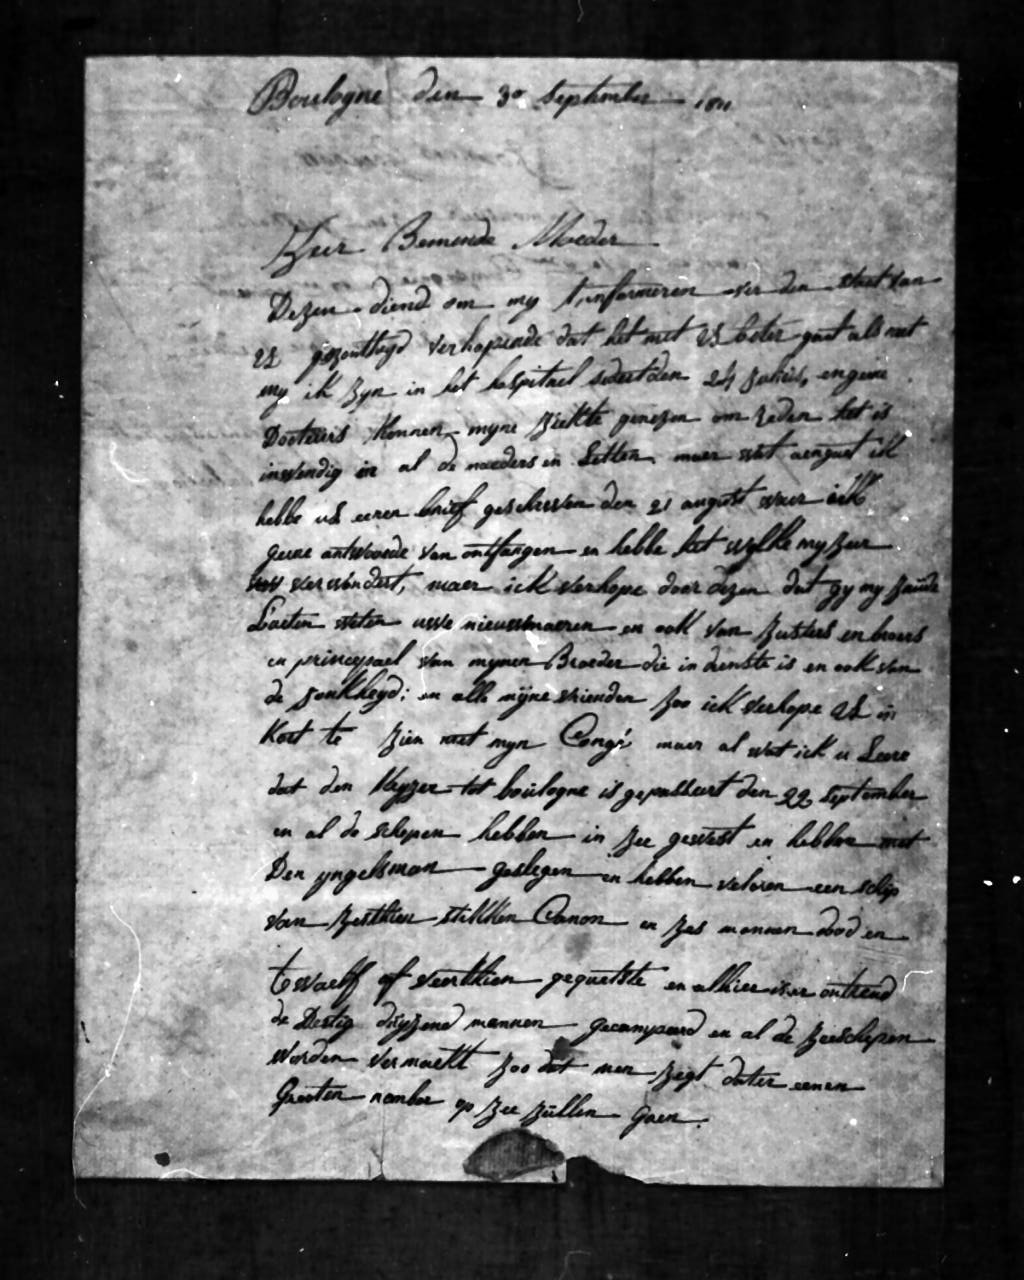 Boulogne den 30 September 1811
Zeer Bemende Moeder
Dezen diend om my t'informeren over den staet van
UE gezontheyd verhopende dat het met UE beter gaet als met
my ik zyn in het hospitael sedert den 24 Junis, en geene
Docteurs konnen myne ziekte genezen om reden het is
inwendig in al de naeders en Letten maer wat aengaet ik
hebbe UE eenen brief geschreven den 21 august waer ick
geene antwoorde van ontfangen en hebbe het welke my zeer
verwondert, maer ick verhope door dezen dat gy my zuude
Laeten weten uwe nieuwmaeren en ook van Zusters en broers
en princypael van mynen Broeder die in dienste is en ook van
de Jonkheyd; en alle myne vrienden zoo ick verhope UE in
kort te zien met myn Congé maer al wat ick u Leere
dat den Keyzer tot boulogne is gepasseert den 22 September
en al de schepen hebben in zee gewest en hebben met
Den yngelsman geslegen en hebben veloren een schip
van zesthien stikken Canon en zes mannen dood en
twaelf of veerthien gequetste en alhier is er ontrend
de Dertig duyzend mannen gecampeerd en al de zeeschepen
worden vermaekt zoo dat men zegt dater eenen
Grooten nomber op zee zullen gaen.